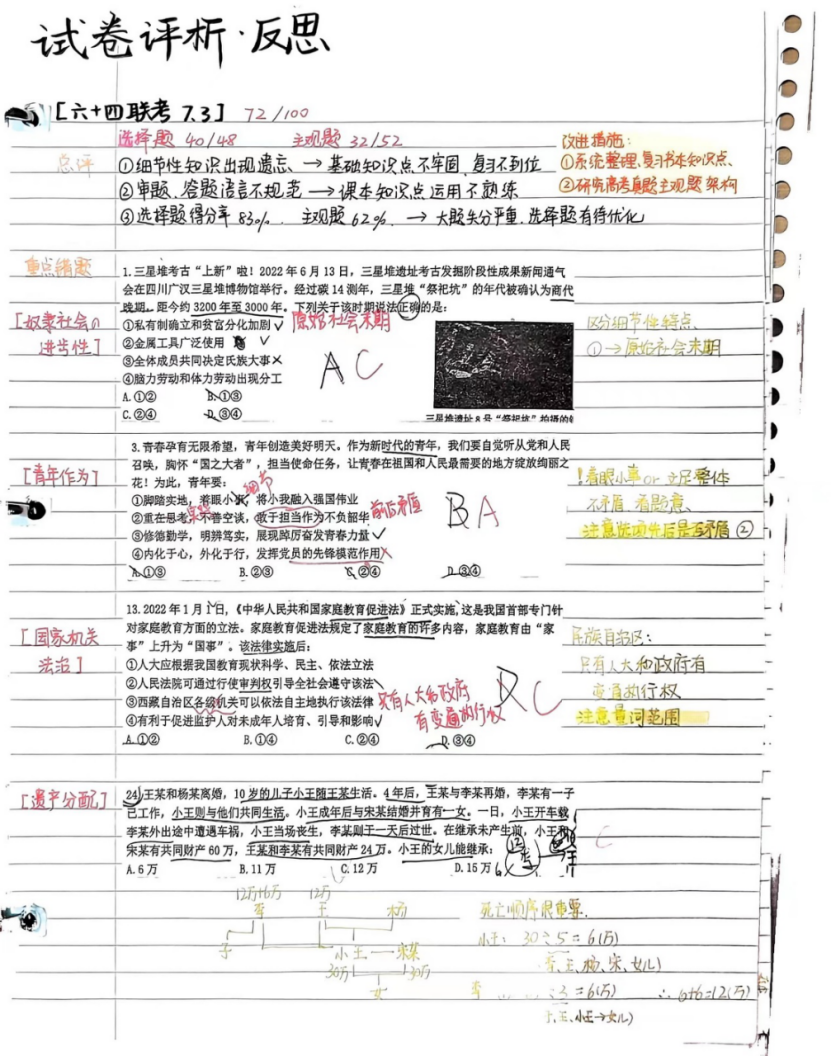 试卷评析·反思
[六十四联考 7.3] 72/100
选择题 40/48 主观题 32/52
总评
①细节性知识出现遗忘、→ 基础知识点不牢固,复习不到位
②审题、答题语言不规范 → 课本知识点运用不熟练
③选择题得分率 83%. 主观题 62%. → 大题失分严重.选择题有待优化
改进措施:
①系统整理、复习书本知识点、
②研究高考真题主观题架构
重点错题
[奴隶社会の
进步性]
1.三星堆考古“上新”啦!2022年6月13日,三星堆遗址考古发掘阶段性成果新闻通气
会在四川广汉三星堆博物馆举行。经过碳14测年,三星堆“祭祀坑”的年代被确认为商代
晚期,距今约3200年至3000年。下列关于该时期说法正确的是:
①私有制确立和贫富分化加剧√ 原始社会末期
②金属工具广泛使用 √
③全体成员共同决定氏族大事×
④脑力劳动和体力劳动出现分工
A.①② B.①③
C.②④ D.③④
A C
三星堆遗址8号“祭祀坑”拍摄的
区分细节性特点、
①→原始社会末期
[青年作为]
3.青春孕育无限希望,青年创造美好明天。作为新时代的青年,我们要自觉听从党和人民
召唤,胸怀“国之大者”,担当使命任务,让青春在祖国和人民最需要的地方绽放绚丽之
花!为此,青年要:
细节
①脚踏实地,着眼小我,将小我融入强国伟业
②重在思考,不善空谈,敢于担当作为不负韶华 前后矛盾
③修德勤学,明辨笃实,展现踔厉奋发青春力量√
④内化于心,外化于行,发挥党员的先锋模范作用×
A.①③ B.②③ C.②④ D.③④
B A
!着眼小事or立足整体
不矛盾.看题意、
注意选项先后是否矛盾②
[国家机关
法治]
13.2022年1月1日,《中华人民共和国家庭教育促进法》正式实施,这是我国首部专门针
对家庭教育方面的立法。家庭教育促进法规定了家庭教育的许多内容,家庭教育由“家
事”上升为“国事”。该法律实施后:
①人大应根据我国教育现状科学、民主、依法立法
②人民法院可通过行使审判权引导全社会遵守该法
③西藏自治区各级机关可以依法自主地执行该法律
④有利于促进监护人对未成年人培育、引导和影响√
只有人大和政府
有变通执行权
A.①② B.①④ C.②④ D.③④
D C
民族自治区:
只有人大和政府有
变通执行权
注意量词范围
[遗产分配]
24.王某和杨某离婚,10岁的儿子小王随王某生活。4年后,王某与李某再婚,李某有一子
已工作,小王则与他们共同生活。小王成年后与宋某结婚并育有一女。一日,小王开车载
李某外出途中遭遇车祸,小王当场丧生,李某则于一天后过世。在继承未产生前,小王和
宋某有共同财产60万,王某和李某有共同财产24万。小王的女儿能继承:
A.6万 B.11万 C.12万 D.15万
C
12万+6万 12万
李 王 杨
子 小王 — 宋某
30万 30万
女
死亡顺序很重要.
小王: 30÷5=6(万)
李、王、杨、宋、女儿)
÷3=6(万) ∴6+6=12(万)
子、王、小王→女儿)